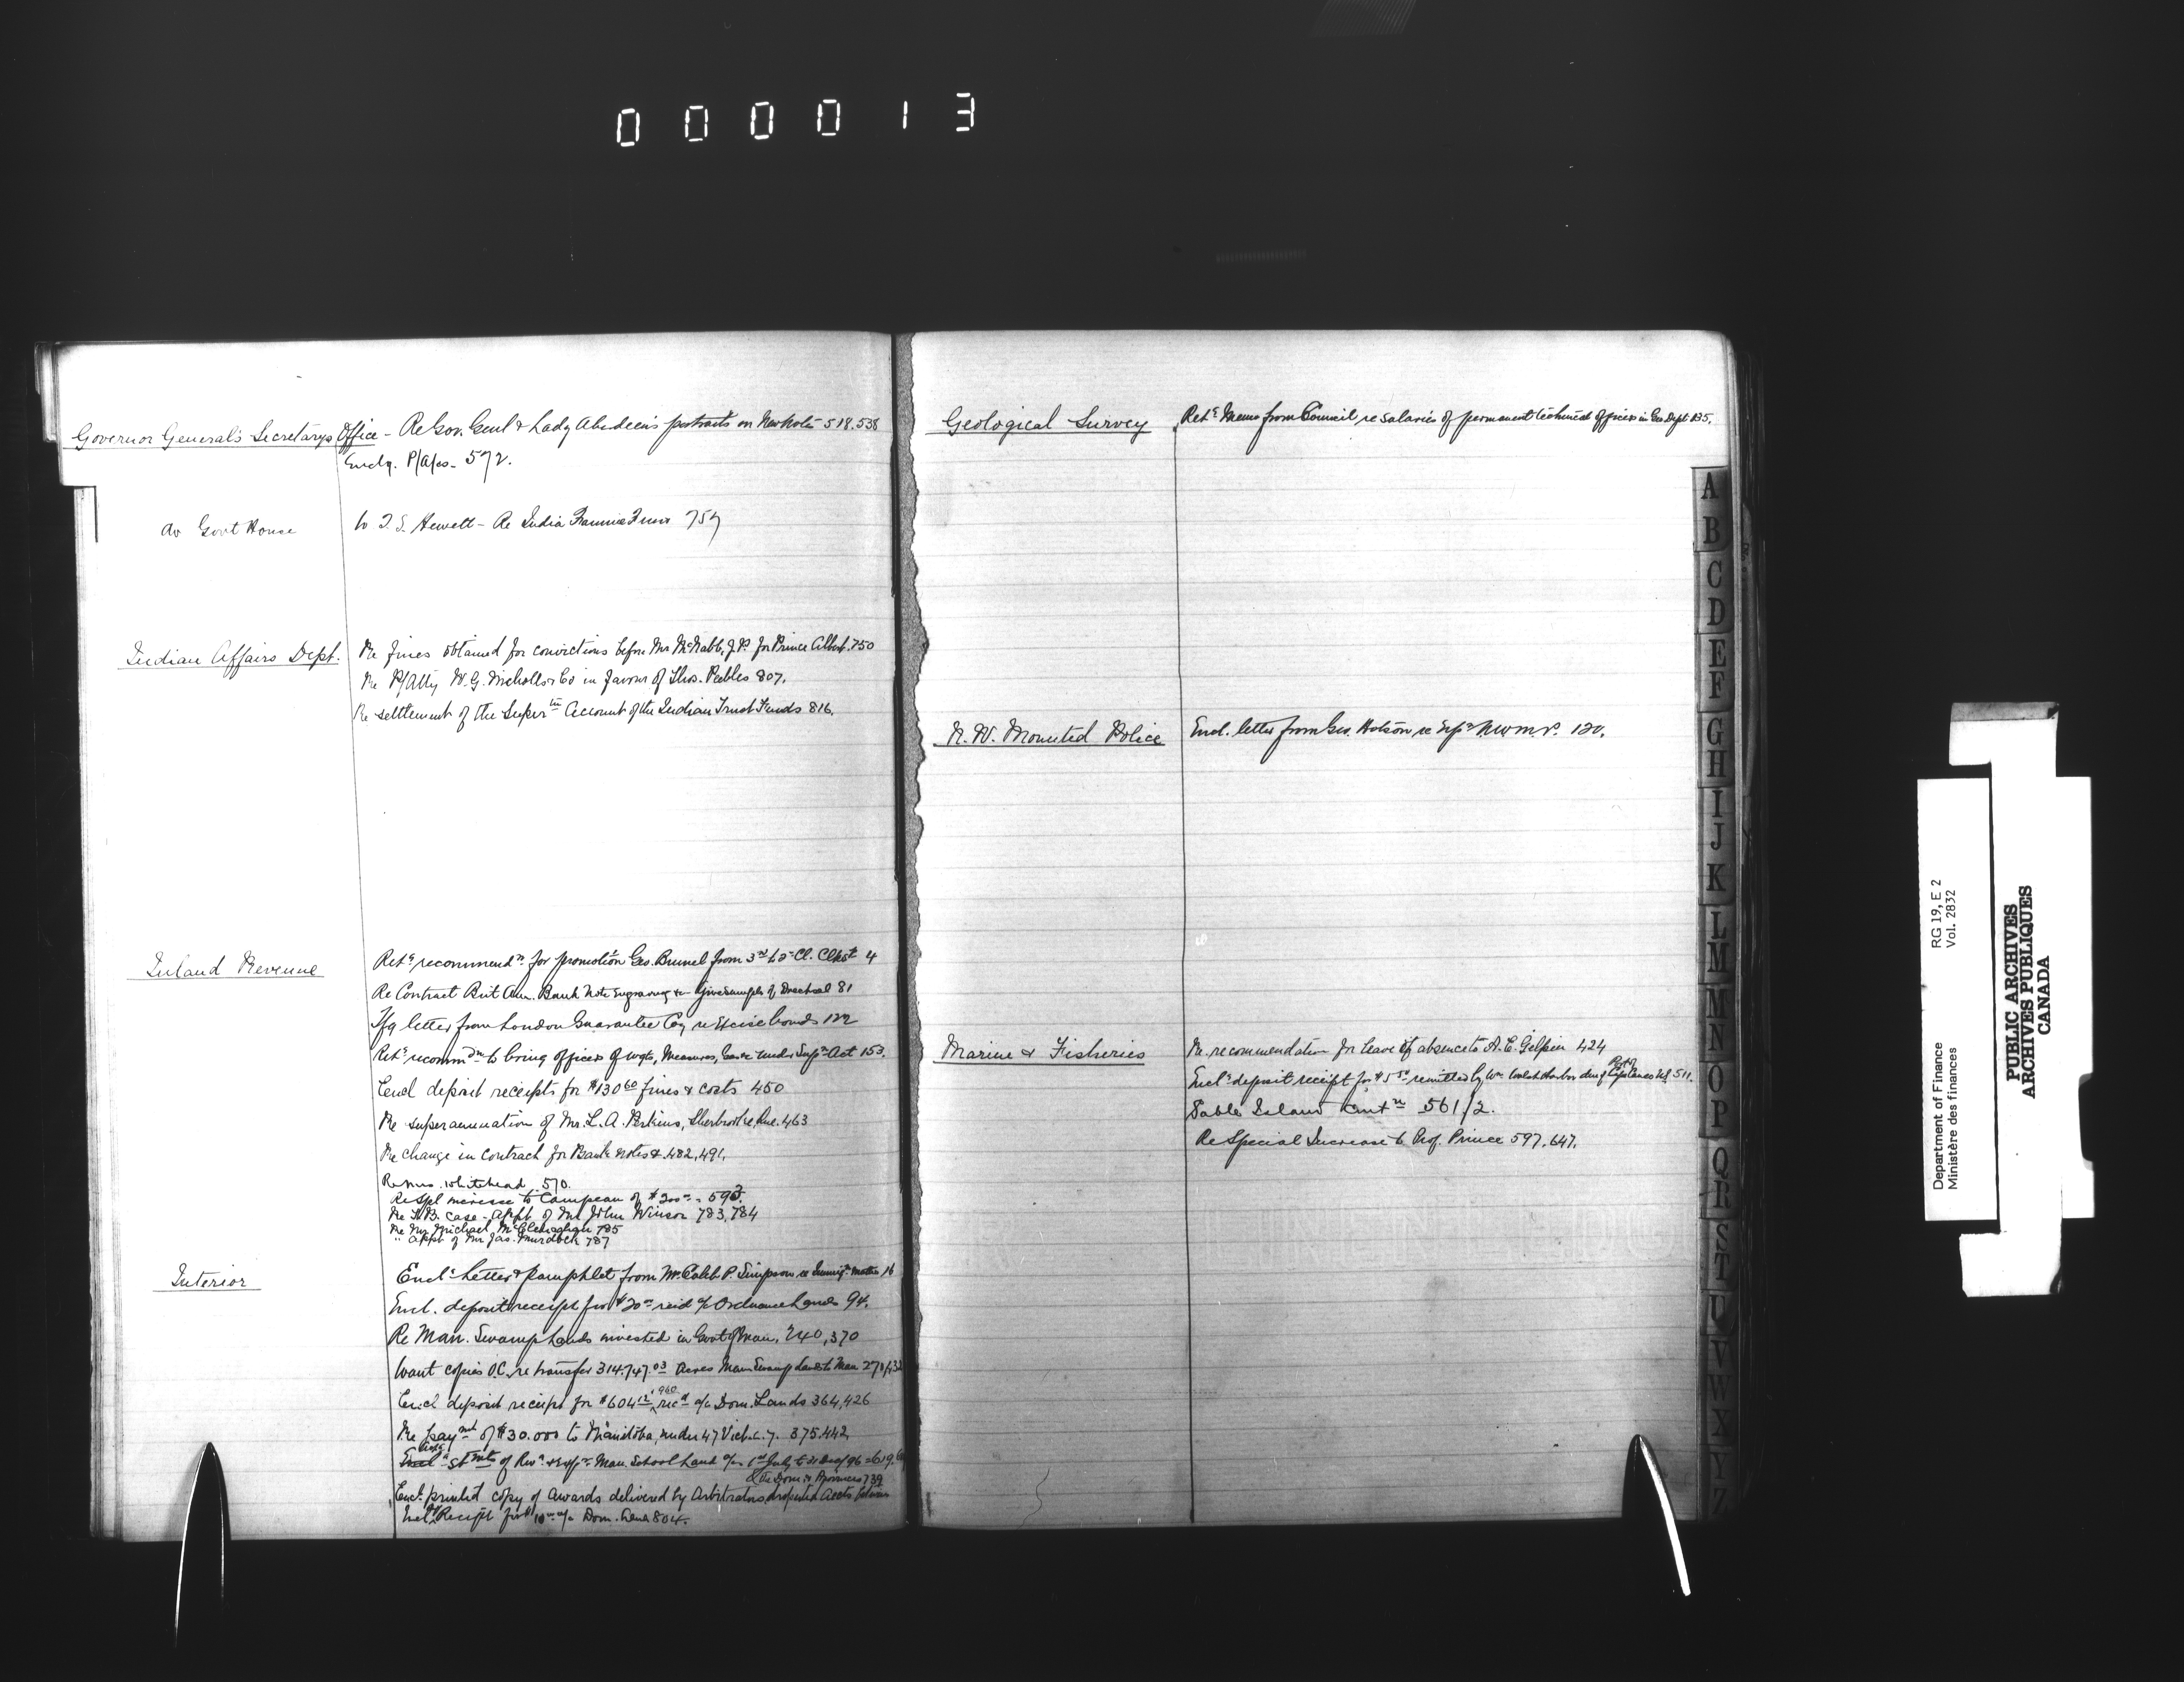 000013
Governor General's Secretarys Office - Re Gov. Genl & Lady Aberdeen's portraits on New Notes 518.538
Enclg. P/a/cs - 572.
do Govt House to T. S. Hewett - Re India Famine Fund 757
Indian Affairs Dept. Re fines obtained for convictions before Mr McNabb, J.P. for Prince Albert. 750
Re P/Atty W. G. Nicholls & Co in favour of Thos. Peebles 807.
Re settlement of the Account of the Indian Trust Funds 816.
Inland Revenue Retg recommendn for promotion Geo. Brunel from 3rd to 2nd Cl. Clk 4
Re Contract Brit Am. Bank Note Engraving Co 81
letter from London Guarantee Coy re Excise bonds 122
Retg recommdn to bring officers of Wgts, Measures, Gas &c under Supn Act 153.
Encl deposit receipts for $130 60 fines & costs 450
Re superannuation of Mr. L. A. Perkins, Sherbrooke, Que. 463
Re change in contract for Bank notes &. 482, 491,
Re Whitehead 570.
Re Spl increase to Campeau of $200 - 593.
Re case - Appt. of Mr John Winsor 783, 784
Re Mr Michael McClenaghan 785
" appt of Mr Jas. Murdock 787
Interior Encl Letter & pamphlet from Mr Caleb P. Simpson re Immign matters 16
Encl. deposit receipt for $20 recd a/c Ordnance Lands 94.
Re Man. Swamp Lands invested in Govt of Man. 240, 370
Want copies O.C. re transfer 314.747.03 Acres Man Swamp Lands to Man 270/432
Encl deposit receipt for $604 12 & 960 recd a/c Dom. Lands 364, 426
Re paymt of $30.000 to Manitoba, under 47 Vict. c. 7. 375.442
Stmts of Revn & Expn Man. School Land a/c 1st July to 31 Dec/96 = 619.
Encl. printed copy of Awards delivered by Arbitrators disputed Accts between
& the Dom. & Provinces 739
Encl Receipt for $10 a/c Dom. Land 804.
Geological Survey Retg Memo from Council re salaries of permanent technical officers in Geo Dept 135.
N. W. Mounted Police Encl. letter from Geo. Hobson re N.W.M.P. 120.
Marine & Fisheries Re recommendation for leave of absence to A. E. Gilpin 424
Encl deposit receipt for $5 50 remitted by Wm Walsh Harbor dues Port of 511.
Sable Island 561/2.
Re Special Increase to Prof. Prince 597, 647.
A
B
C
D
E
F
G
H
I
J
K
L
M
M
N
O
P
Q
R
S
T
U
V
W
X
Y
Z
Department of Finance
Ministère des finances
RG 19, E 2
Vol. 2832
PUBLIC ARCHIVES
ARCHIVES PUBLIQUES
CANADA